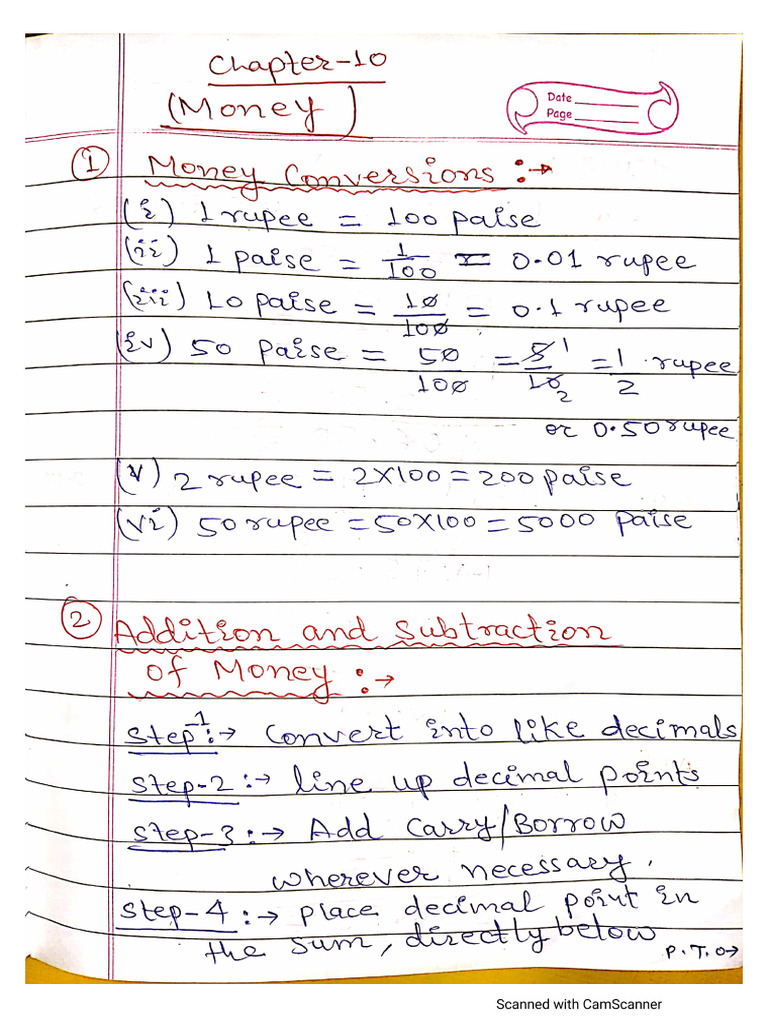 Chapter-10
(Money)
Date
Page
① Money Conversions :→
(i) 1 rupee = 100 paise
(ii) 1 paise = 1/100 = 0.01 rupee
(iii) 10 paise = 10/100 = 0.1 rupee
(iv) 50 paise = 50/100 = 5/10 1/2 = 1/2 rupee
or 0.50 rupee
(v) 2 rupee = 2×100 = 200 paise
(vi) 50 rupee = 50×100 = 5000 paise
② Addition and Subtraction
of Money :→
Step-1 :→ Convert into like decimals
Step-2 :→ line up decimal points
Step-3 :→ Add Carry/Borrow
wherever necessary.
Step-4 :→ place decimal point in
the sum, directly below
P.T.O→
Scanned with CamScanner